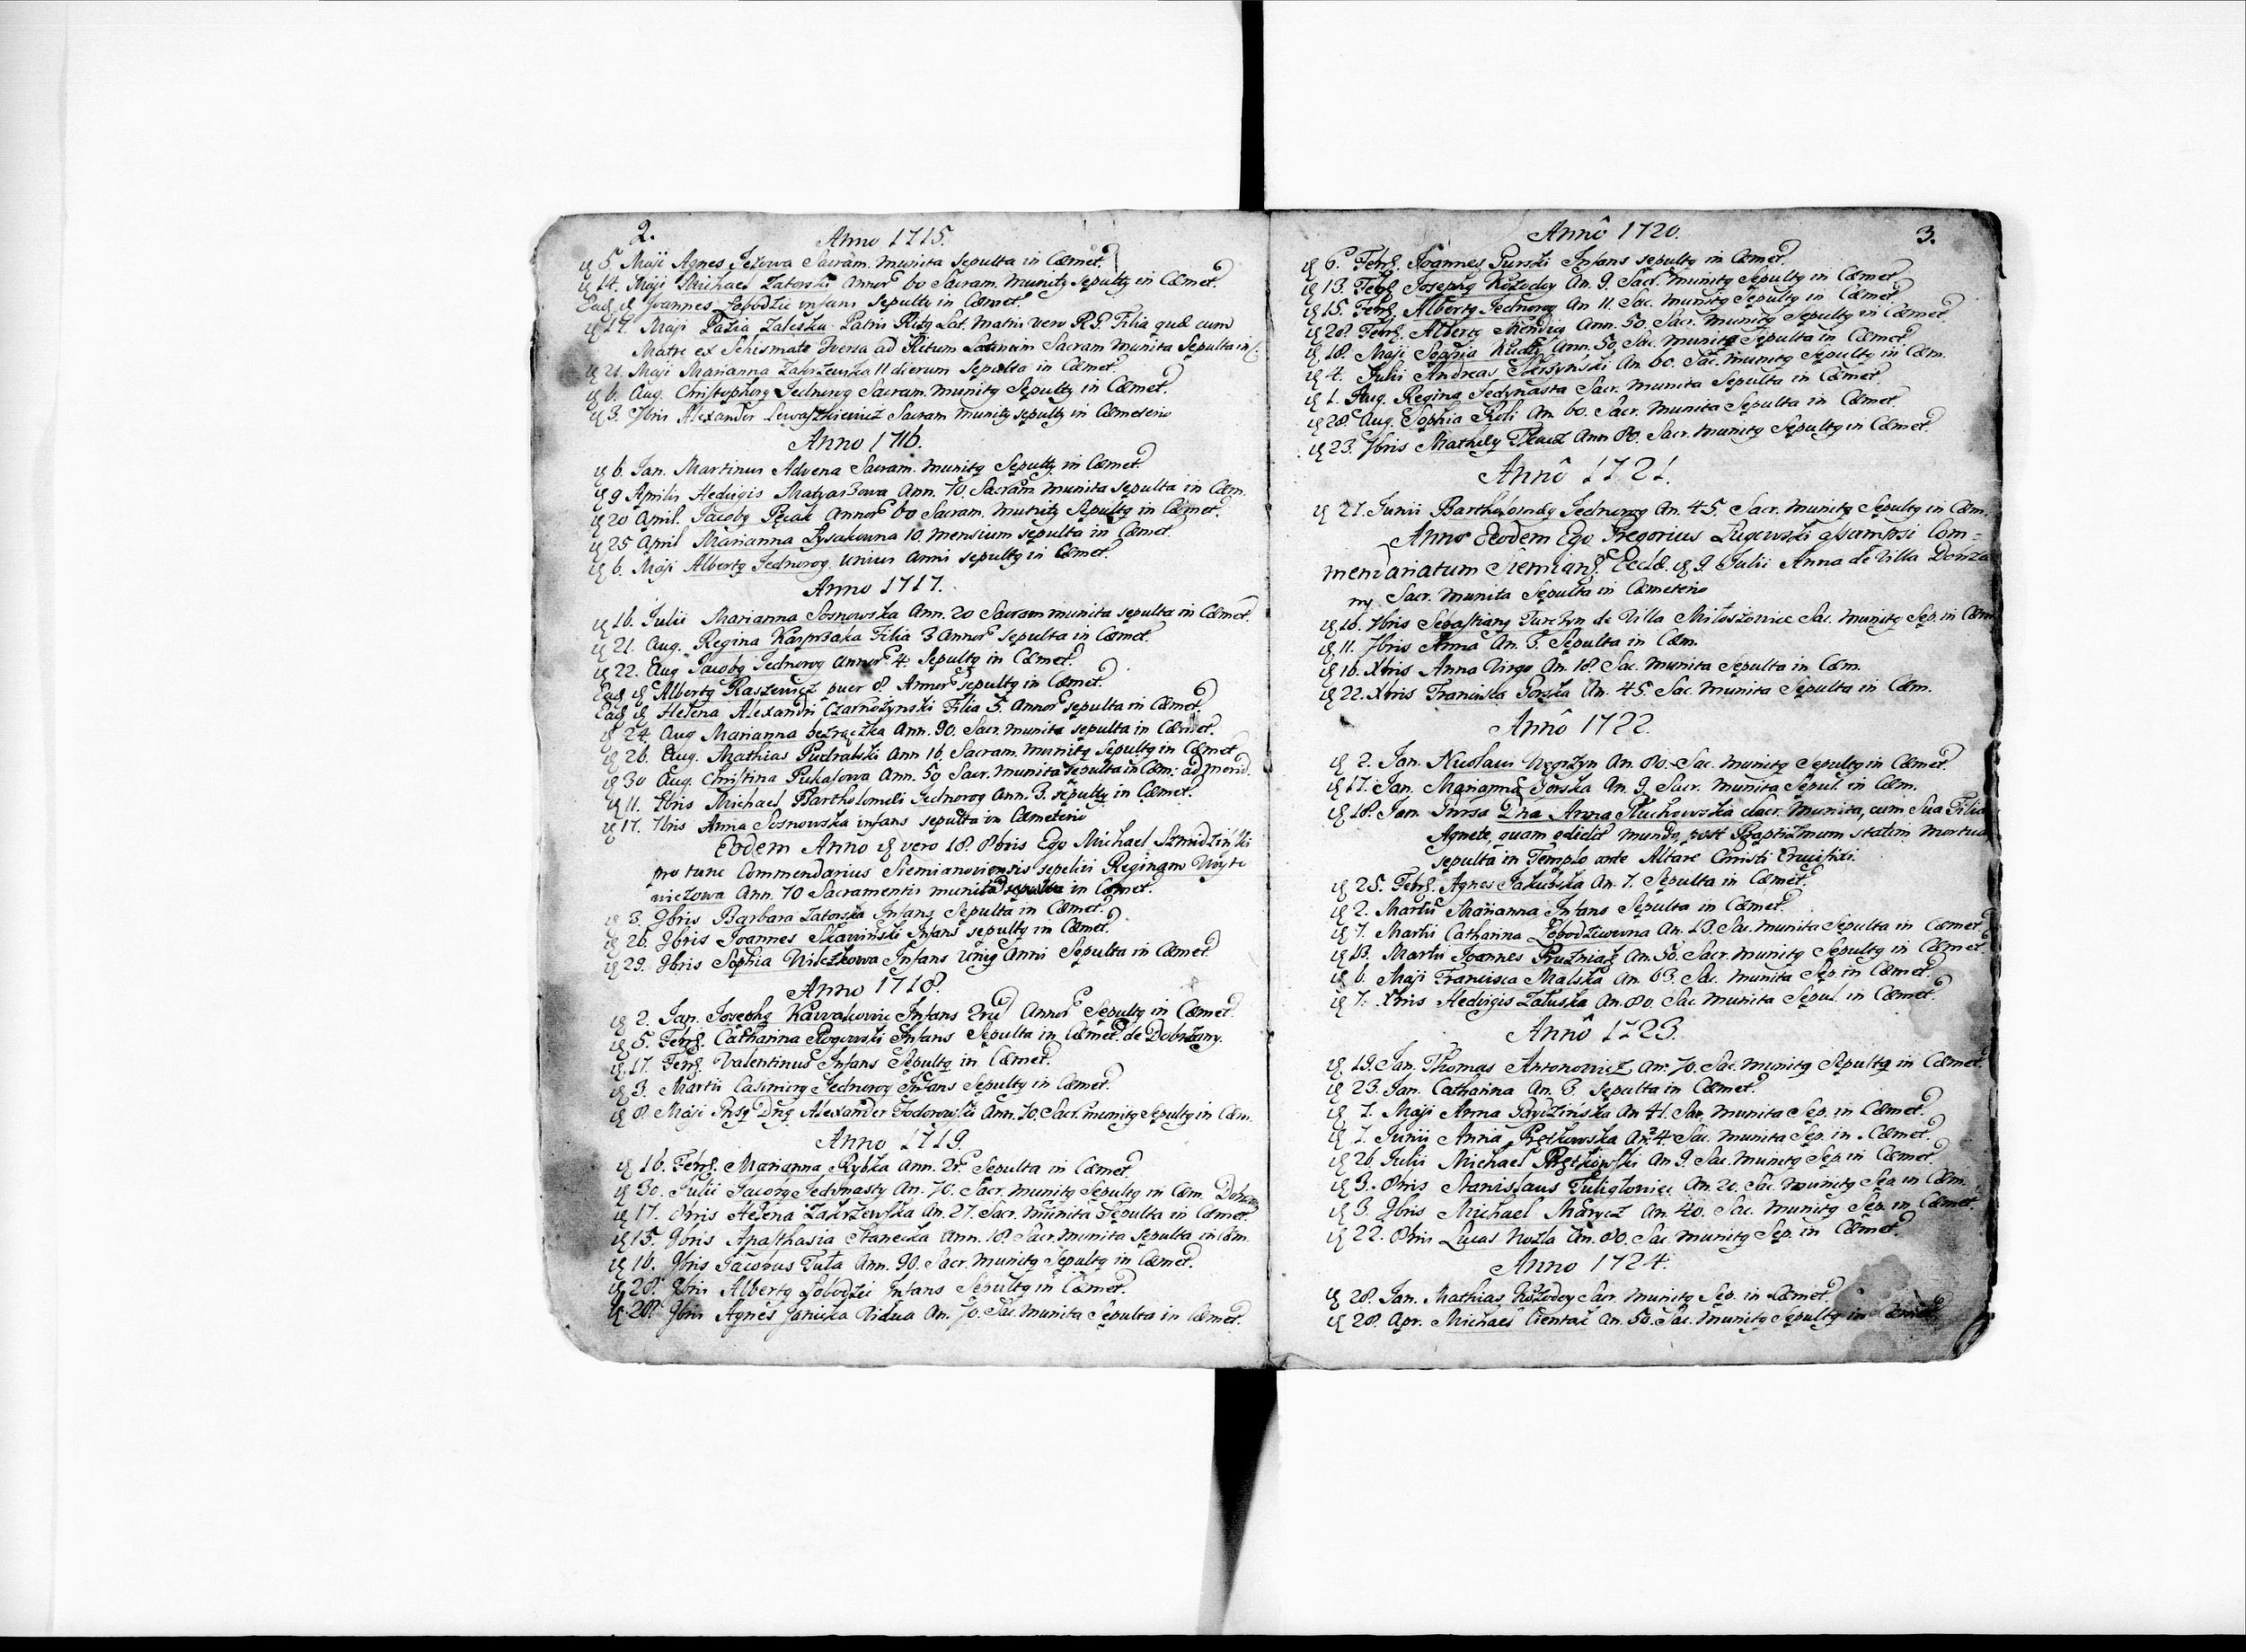 2.
Anno 1715.
d 5. Maji Agnes Jezowa Sacram. munita Sepulta in Cœmet.
d 14. Maji Michael Zatorski Annor 60 Sacram. Munitq sepultq in Cœmet.
Ead d Joannes Łobodzic infans sepultq in Cœmet.
d 17. Maji Pazia Zaleska Patris Ritq Lat. matris vero R.G. Filia quæ cum
Matre ex Schismate Iversa ad Ritum Latinum Sacram munita Sepulta in C.
d 21. Maji Marianna Zakrzewska 11 dierum Sepulta in Cœmet.
d 6. Aug. Christophorq Jednorog Sacram. munitq Sepultq in Cœmet.
d 3. 7bris Alexander Lewaszkiewicz Sacram munitq sepultq in Cœmeterio
Anno 1716.
d 6. Jan. Martinus Advena Sacram. munitq Sepultq in Cœmet.
d 9 Aprilis Hedvigis Matyaszowa Ann. 70. Sacram. munita sepulta in Cœm.
d 20 April. Jacobq Pęcak Annor 60 Sacram. munitq Sepultq in Cœmet.
d 25 April Marianna Łysakowna 10. mensium sepulta in Cœmet.
d 6. Maji Albertq Jednorog unius anni sepultq in Cœmet.
Anno 1717.
d 16. Julii Marianna Sosnowska Ann. 20 Sacram munita sepulta in Cœmet.
d 21. Aug. Regina Kasprzaka Filia 3 Annor sepulta in Cœmet.
d 22. Aug Jacobq Jednorog annor 4. Sepultq in Cœmet.
Ead d Albertq Raszewicz puer 8. Annor sepultq in Cœmet.
Ead d Helena Alexandri Czarnożynski Filia 5. Annor sepulta in Cœmet.
d 24. Aug Marianna bezrączka Ann. 90. Sacr. munita sepulta in Cœmet.
d 26. Aug. Mathias Pudralski Ann 16. Sacram. munitq Sepultq in Cœmet
d 30 Aug. Christina Pukalowa Ann. 50 Sacr. munita sepulta in Cœm:
d 11. 7bris Michael Bartholomei Jednorog Ann. 3. sepultq in Cœmet.
d 17. 7bris Anna Sosnowska infans sepulta in Cœmeterio
Eodem Anno d vero 18. 8bris Ego Michael Szmidziński
pro tunc Commendarius Siemianoviensis sepelivi Reginam Woyte
wiczowa Ann. 70 Sacramentis munita sepulta in Cœmet.
d 3. 9bris Barbara Zatorska Infans Sepulta in Cœmet.
d 26. 9bris Joannes Skawiński Infans sepultq in Cœmet.
d 29. 9bris Sophia Wilczkowa Infans Uniq Anni Sepulta in Cœmet.
Anno 1718.
d 2. Jan. Josephq Kawalowic Infans Annor Sepultq in Cœmet.
d 5. Febr. Catharina Rogowski Infans Sepulta in Cœmet. de Dobrzany.
d 17. Febr. Valentinus Infans Sepultq in Cœmet.
d 3. Martii Casimirq Jednorog Infans Sepultq in Cœmet.
d 8. Maji Dnq Alexander Todorowski Ann. 70. Sacr. munitq Sepultq in Cœm.
Anno 1719.
d 16. Febr. Marianna Rybka Ann. Sepulta in Cœmet.
d 30. Julii Jacobq Jedynasty An. 70. Sacr. munitq Sepultq in Cœm.
d 17. 8bris Helena Zakrzewska An. 27. Sacr. munita Sepulta in Cœmet.
d 15. 9bris Anasthasia Stanecka Ann. 18. Sacr. munita Sepulta in Cœm.
d 16. 9bris Jacobus Tuta Ann. 90. Sacr. munitq Sepultq in Cœmet.
d 28. 9bris Albertq Łobodzic Infans Sepultq in Cœmet.
d 28. 9bris Agnes Janicka Vidua An. 70. Sac. munita Sepulta in Cœmet.
3.
Annô 1720.
d 6. Febr. Joannes Gurski Infans sepultq in Cœmet.
d 13. Febr Josephq Kołodey An. 9. Sacr. munitq Sepultq in Cœmet
d 15. Febr. Albertq Jednorog An 11. Sac. munitq Sepultq in Cœmet.
d 28. Febr. Albertq Mendiq Ann. 50. Sac. munitq Sepultq in Cœmet
d 18. Maji Sophia Ann. 50. Sac. munita Sepulta in Cœmet.
d 4. Julii Andreas An 60. Sac. munitq Sepultq in Cœm.
d 1. Aug. Regina Jedynasta Sacr. munita Sepulta in Cœmet.
d 28. Aug. Sophia An. 60. Sacr. munita Sepulta in Cœmet.
d 23. 7bris Ann 80. Sacr. munitq Sepultq in Cœmet
Annô 1721.
d 27. Junii Bartholomeq Jednorog An. 45. Sacr. munitq Sepultq in Cœm.
Anno Eodem Ego Gregorius Ługowski assumpsi Com=
mendariatum Siemian. Ecclæ. d 9. Julii Anna de Villa Dobrza
ny Sacr. munita Sepulta in Cœmeterio
d 16. 7bris Sebastianq Turczyn de Villa Miłoszowice Sac. munitq Sep. in Cœm
d 11. 7bris Anna An. 3. Sepulta in Cœm.
d 16. Xbris Anna Virgo An. 18 Sac. munita Sepulta in Cœm.
d 22. Xbris Francisca Gorska An. 45. Sac. munita Sepulta in Cœm.
Annô 1722.
d 2. Jan. Nicolaus Węgrzyn An. 80. Sac. munitq Sepultq in Cœmet.
d 17. Jan. Marianna Gorska An. 9. Sacr. munita Sepul. in Cœm.
d 18. Jan. Dna Anna Sacr. munita, cum Sua Filia
Agnete, quam edidit mundo, post Baptismum statim mortua
sepulta in Templo ante Altare Christi Crucifixi.
d 25. Febr. Agnes Jakubska An. 7. Sepulta in Cœmet.
d 2. Martii Marianna Infans Sepulta in Cœmet.
d 7. Martii Catharina Łobodziowna An. 13. Sac. munita Sepulta in Cœmet
d 13. Martii Joannes Pruzniaz An. 50. Sacr. munitq Sepultq in Cœmet
d 6. Maji Francisca Malska An. 63. Sac. munita Sep. in Cœmet.
d 7. Xbris Hedvigis Załuska An. 80. Sac munita Sepul. in Cœmet.
Annô 1723.
d 19. Jan. Thomas Antonowicz An. 70. Sac. munitq Sepultq in Cœmet
d 23. Jan. Catharina An. 3. Sepulta in Cœmet.
d 7. Maji Anna An 41. Sac. munita Sep. in Cœmet.
d 7. Junii Anna Prętkowska An. 4. Sac. munita Sep. in Cœmet.
d 26. Julii Michael Prętkowski An 9. Sac. munitq Sep. in Cœmet.
d 3. 8bris Stanislaus Tuligłowicz An. Sac. munitq Sep in Cœm.
d 3. 9bris Michael An. 40. Sac. munitq Sep. in Cœmet.
d 22. 8bris Lucas Wozla An. 80. Sac munitq Sep. in Cœmet.
Anno 1724.
d 28. Jan. Mathias Kołodey Sacr. munitq Sep. in Cœmet.
d 28. Apr. Michael An. 50. Sac. munitq Sepultq in Cœmet.